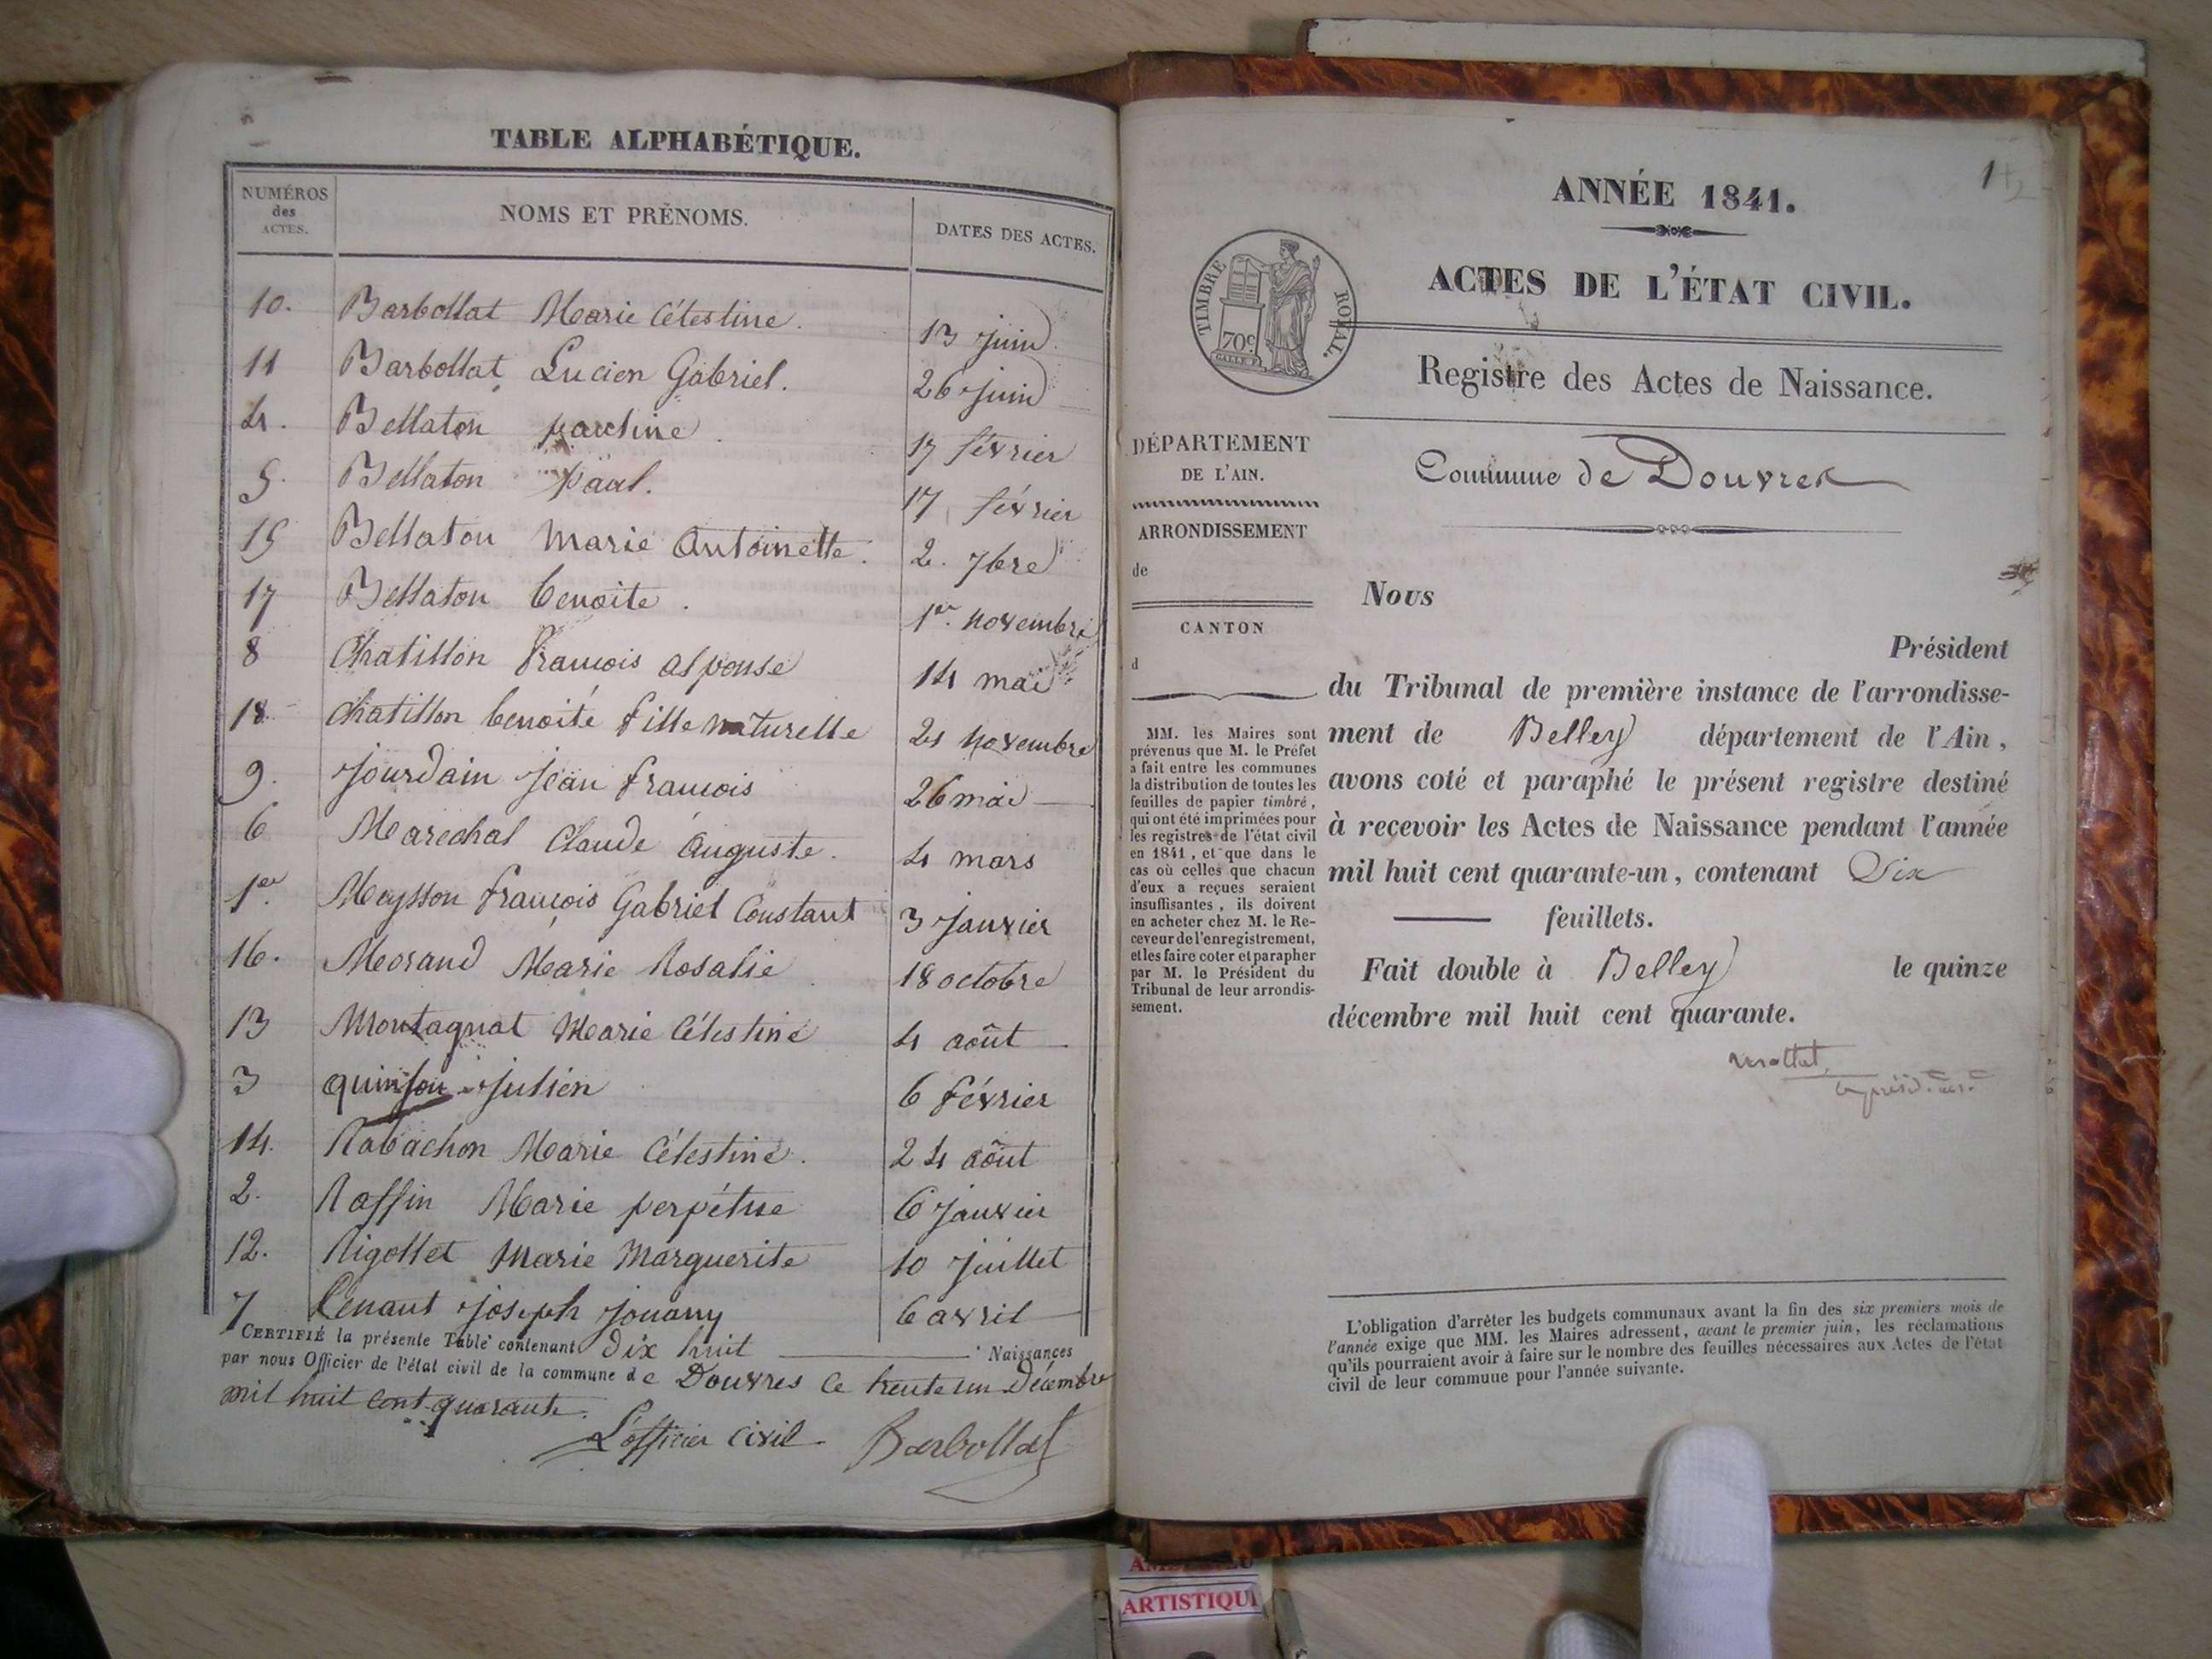 TABLE ALPHABÉTIQUE.
NUMÉROS des ACTES. NOMS ET PRÉNOMS. DATES DES ACTES.
10. Barbollat Marie Célestine. 13 juin
11 Barbollat Lucien Gabriel. 26 juin
4. Bellaton pauline. 17 février
5. Bellaton paul. 17 février
15 Bellaton Marie Antoinette. 2. 7bre
17 Bellaton benoite. 1er novembre
8 Chatillon François alponse 14 mai
18 Chatillon benoite fille naturelle 21 novembre
9. Jourdain Jean François 26 mai
6 Marechal Claude Auguste. 4 mars
1er Meysson François Gabriel Constant 3 janvier
16. Morand Marie Rosalie 18 octobre
13 Montagnat Marie Célestine 4 août
3 quinson Julien 6 février
14. Rabachon Marie Célestine. 24 août
2. Raffin Marie perpétue 6 janvier
12. Rigollet Marie Marguerite 10 juillet
7 Joseph Jouany 6 avril
CERTIFIÉ la présente Table contenant dix huit Naissances
par nous Officier de l'état civil de la commune de Douvres le trente un Décembre
mil huit cent quarante.
L'officier civil Barbollat
1
ANNÉE 1841.
ACTES DE L'ÉTAT CIVIL.
TIMBRE ROYAL.
70c
Registre des Actes de Naissance.
DÉPARTEMENT
DE L'AIN.
ARRONDISSEMENT
de
CANTON
d
MM. les Maires sont
prévenus que M. le Préfet
a fait entre les communes
la distribution de toutes les
feuilles de papier timbré,
qui ont été imprimées pour
les registres de l'état civil
en 1841, et que dans le
cas où celles que chacun
d'eux a reçues seraient
insuffisantes, ils doivent
en acheter chez M. le Re-
ceveur de l'enregistrement,
et les faire coter et parapher
par M. le Président du
Tribunal de leur arrondis-
sement.
Commune de Douvres
Nous
Président
du Tribunal de première instance de l'arrondisse-
ment de Belley département de l'Ain,
avons coté et paraphé le présent registre destiné
à recevoir les Actes de Naissance pendant l'année
mil huit cent quarante-un, contenant Six
feuillets.
Fait double à Belley le quinze
décembre mil huit cent quarante.
L'obligation d'arrêter les budgets communaux avant la fin des six premiers mois de
l'année exige que MM. les Maires adressent, avant le premier juin, les réclamations
qu'ils pourraient avoir à faire sur le nombre des feuilles nécessaires aux Actes de l'état
civil de leur commune pour l'année suivante.
ARTISTIQU